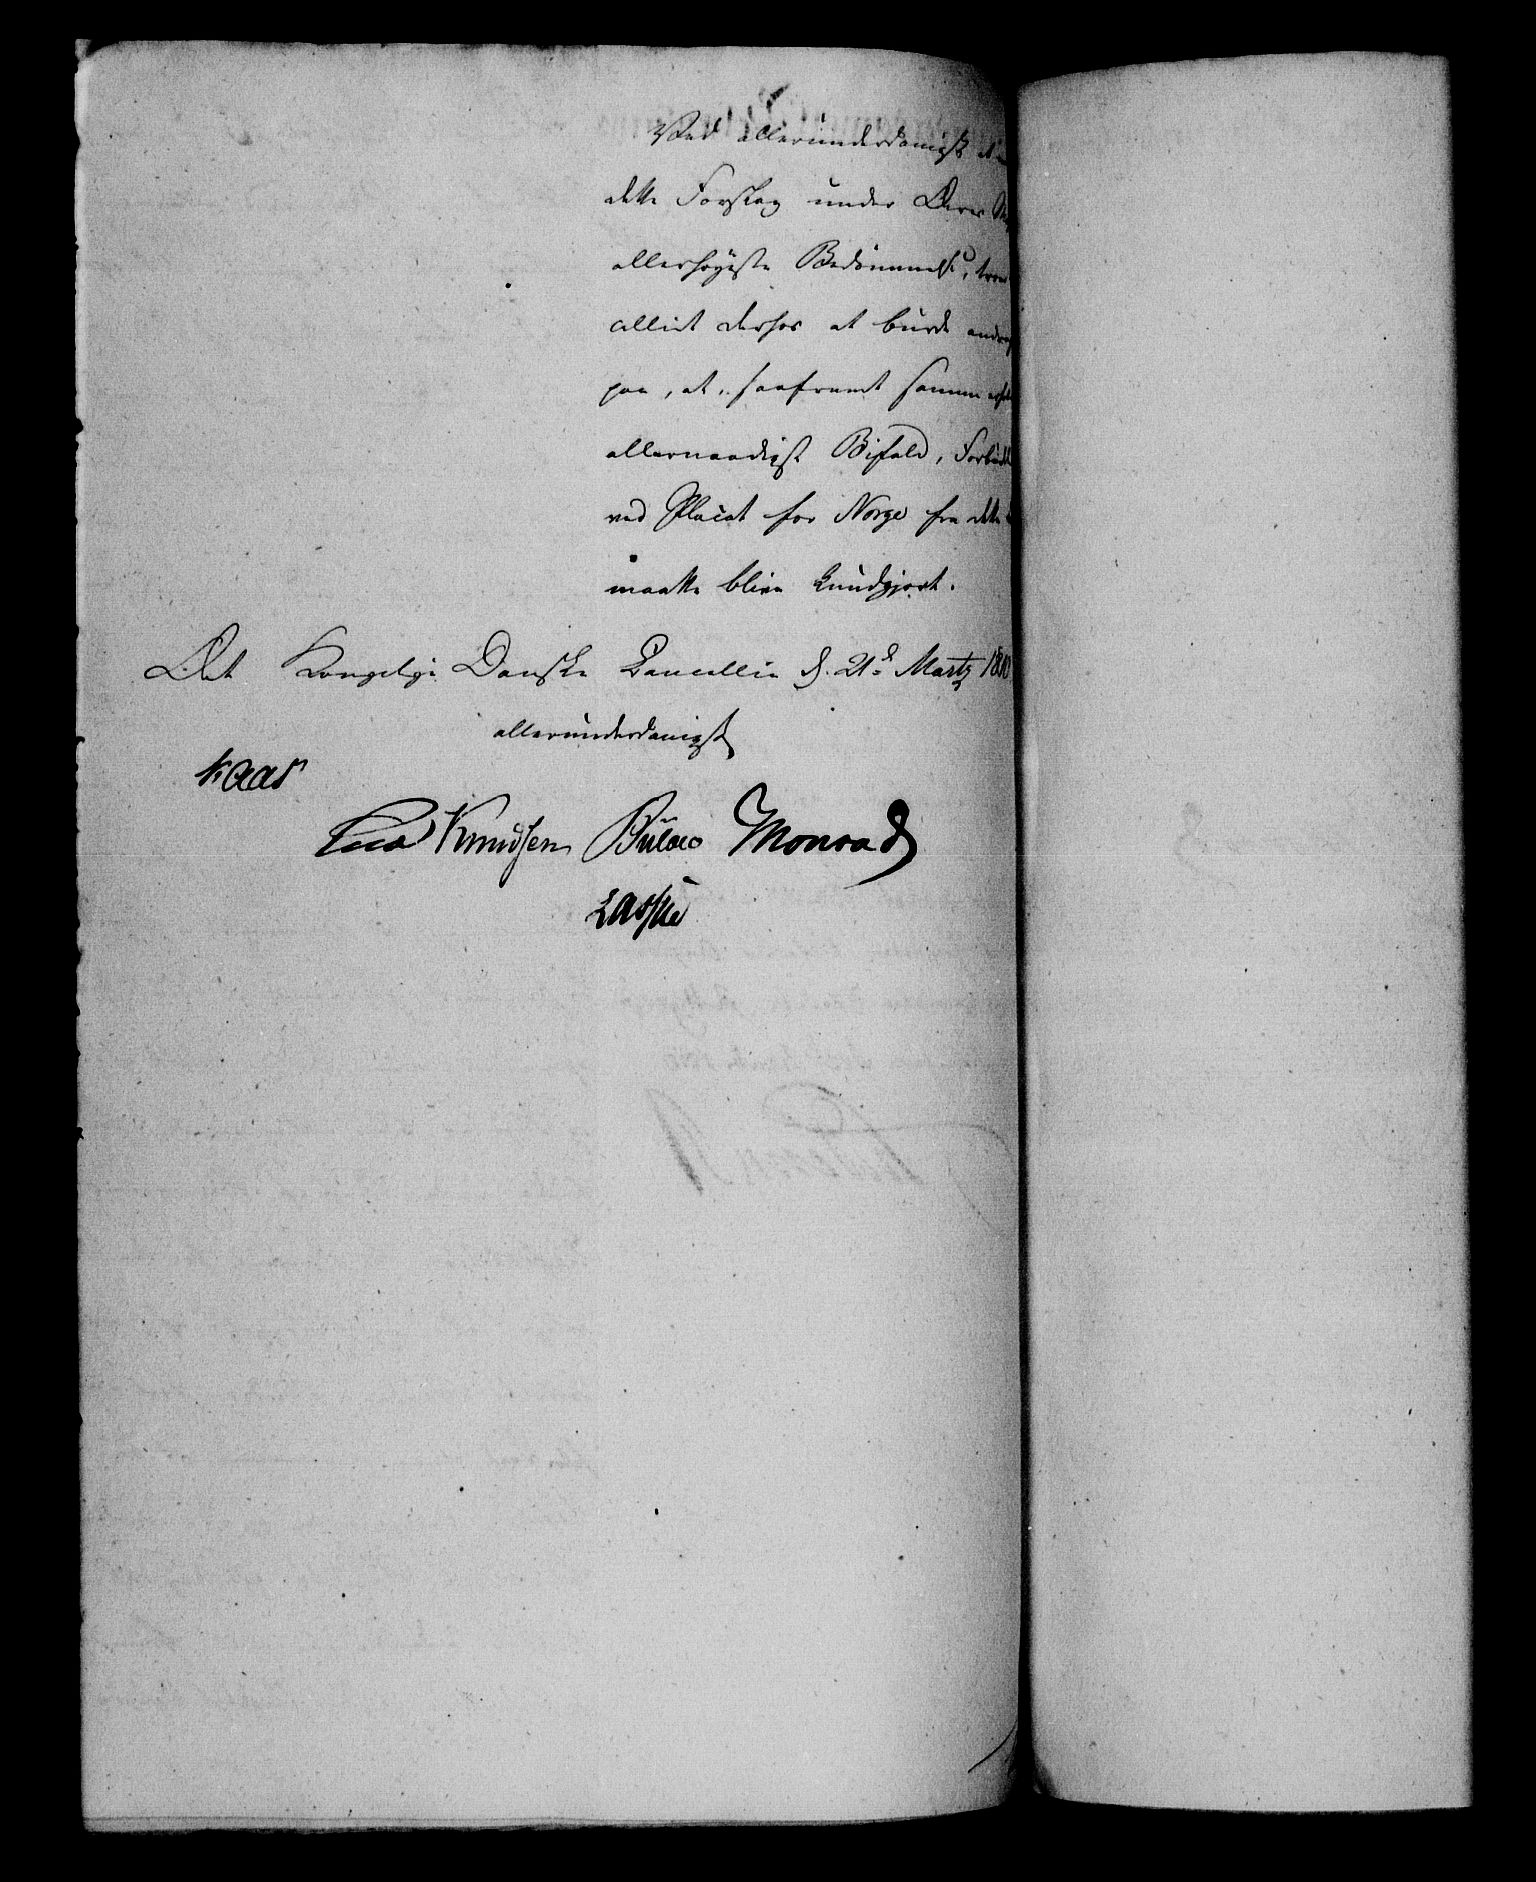 Ved allerunderdanigst at
dette Forslag under Deres
allerhøyeste Bedømmelse, troer
Cancelliet derhos at burde andrage
paa, at, saafremt samme
allernaadigst Bifald, Forbudet
ved Placat for Norge fra dette
maatte blive kundgjort.
Det Kongelige Danske Cancellie d. 21d Martz
allerunderdanigst
Kaas
Knudsen Bülow Monrad
Lassen